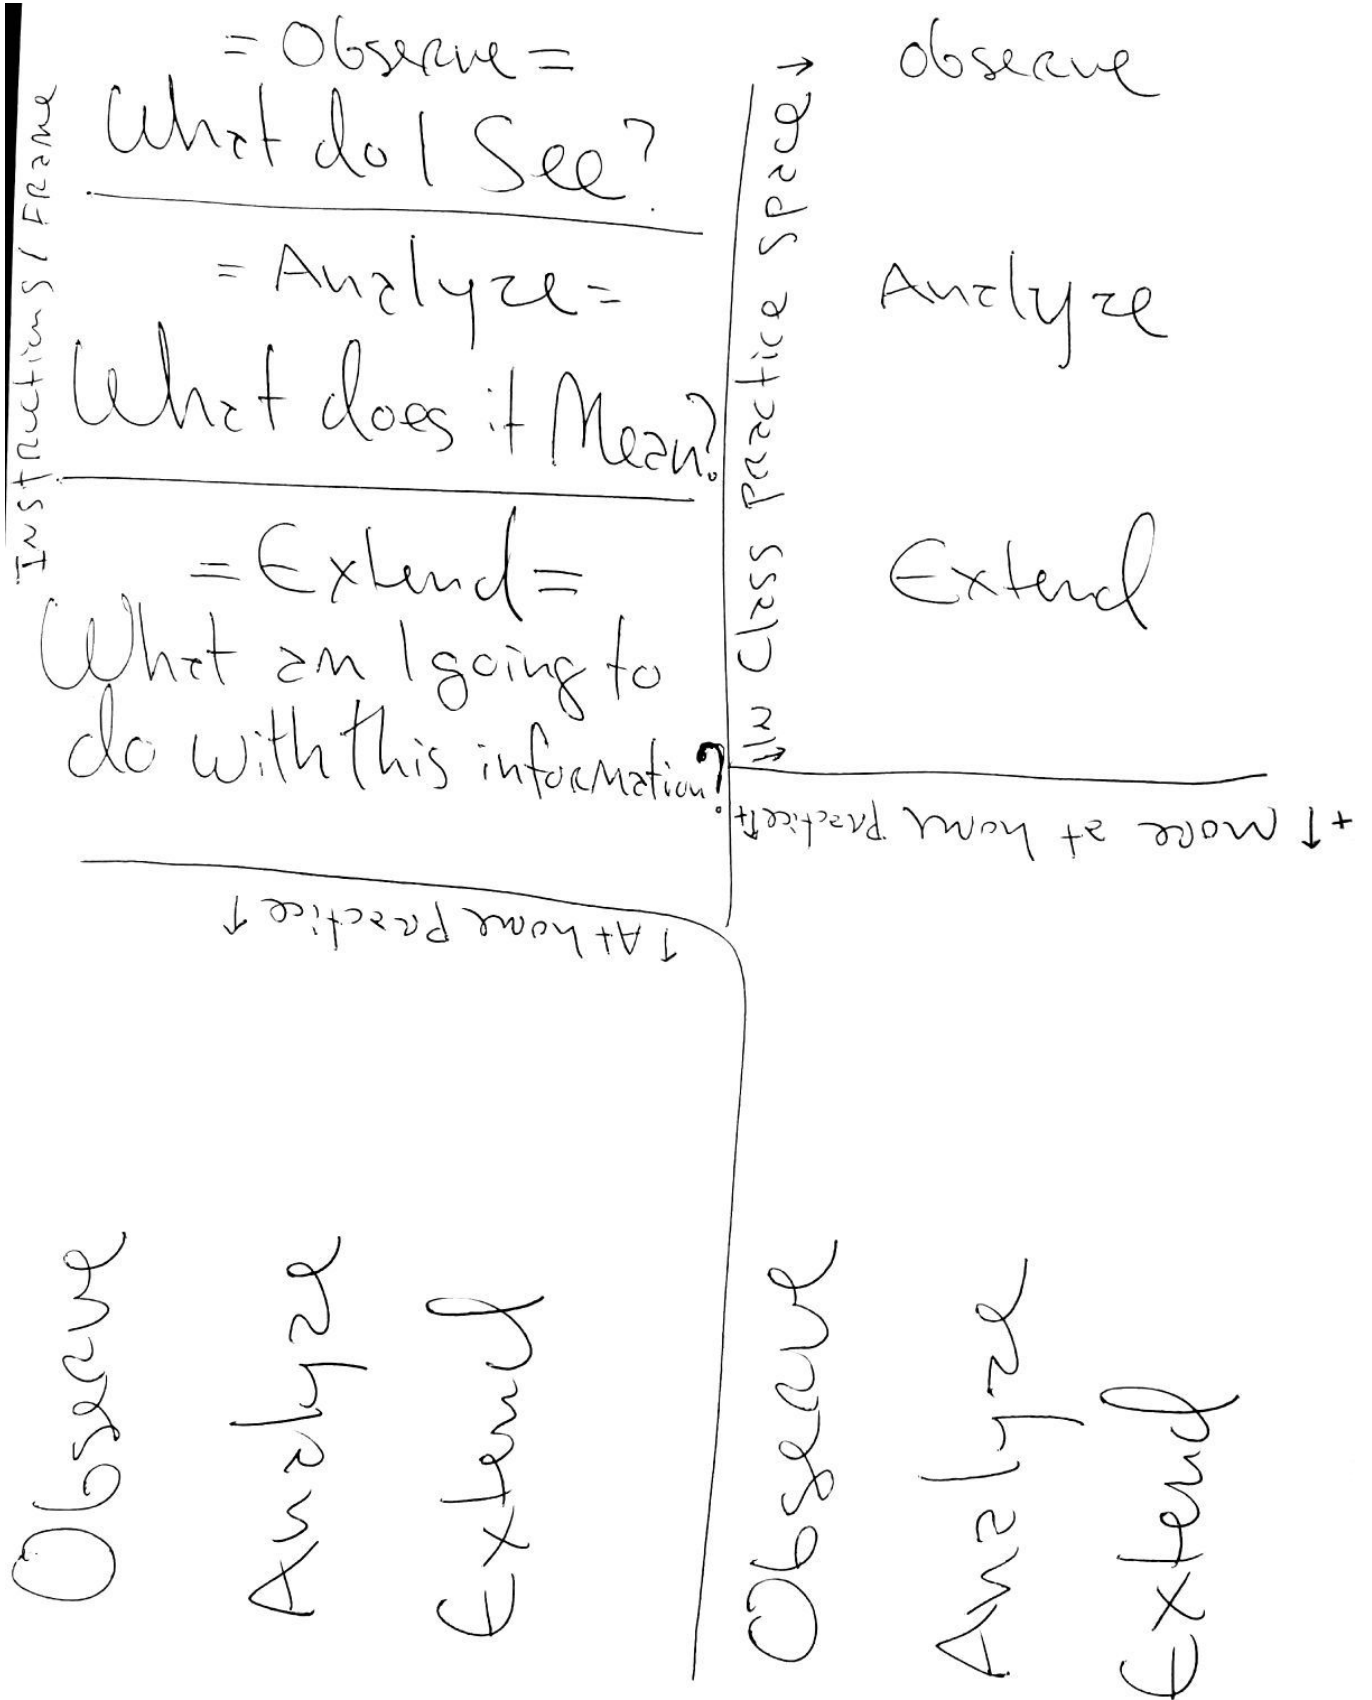 Instructions / Frame
= Observe =
What do I See?
= Analyze =
What does it Mean?
= Extend =
What am I going to
do with this information?
↓ In Class Practice Space →
observe
Analyze
Extend
↑ At home Practice ↑
Observe
Analyze
Extend
+↑ more at home practice ↑+
Observe
Analyze
Extend